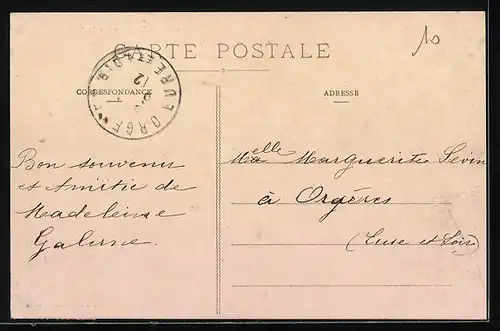 10
CARTE POSTALE
CORRESPONDANCE
ADRESSE
ORGÈRES
EURE ET LOIR
Bon souvenir
et Amitié de
Madeleine
Galerne.
Melle Marguerite Sevin
à Orgères
(Eure et Loir)